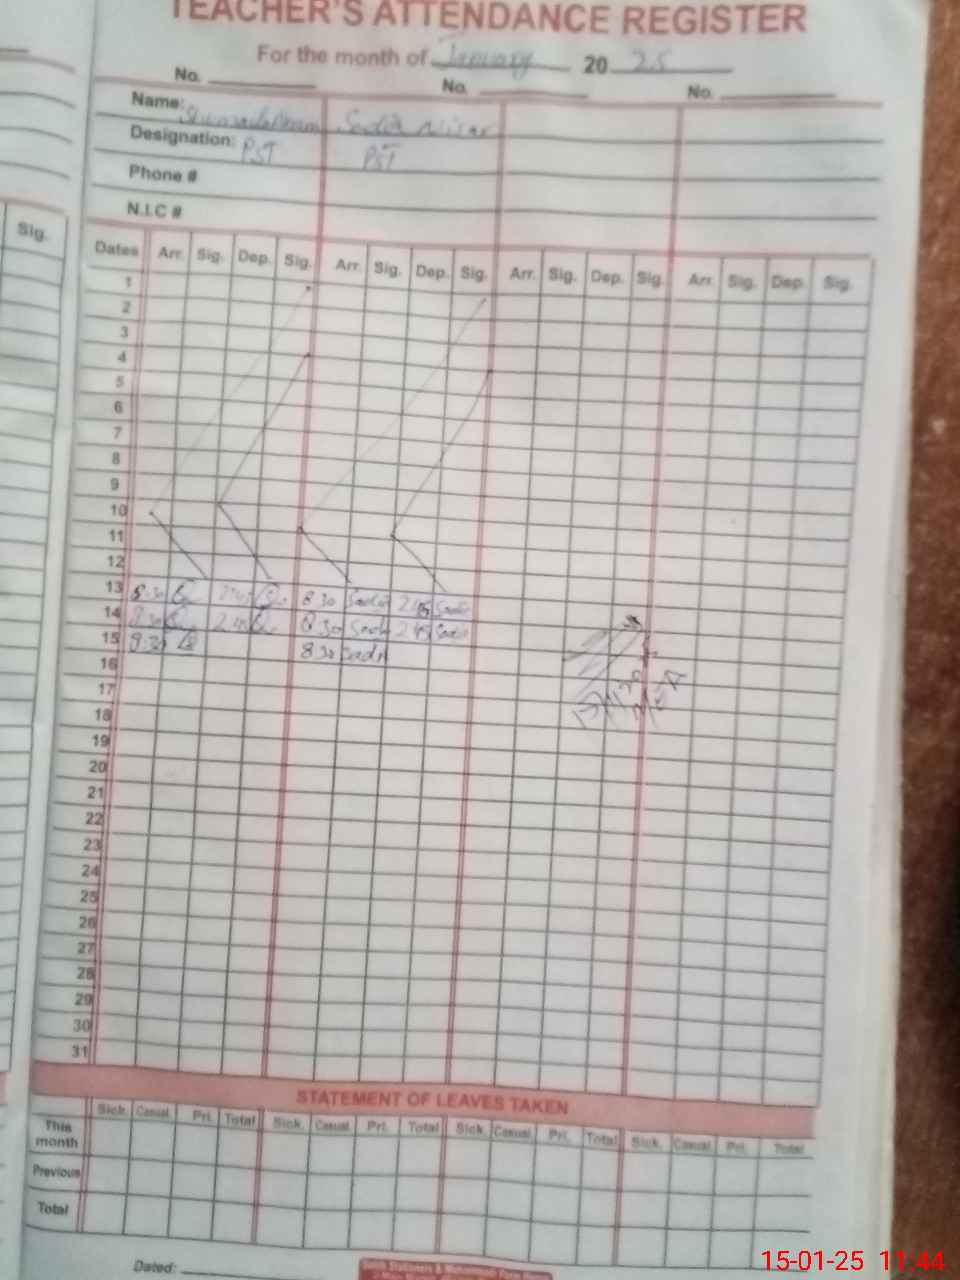 TEACHER'S ATTENDANCE REGISTER
For the month of January 20 25
No. No. No.
Name: Sadia Nisar
Designation: PST PST
Phone #
N.I.C #
Sig.
Dates Arr. Sig. Dep. Sig. Arr. Sig. Dep. Sig. Arr. Sig. Dep. Sig. Arr. Sig. Dep. Sig.
1
2
3
4
5
6
7
8
9
10
11
12
13 8:30 2:45 8 30 Sadia 2.45 Sadia
14 8:30 2:45 8 30 Sadia 2 45 Sadia
15 8:30 8 30 Sadia
16
17
18
19
20
21
22
23
24
25
26
27
28
29
30
31
STATEMENT OF LEAVES TAKEN
Sick. Casual. Pri. Total Sick. Casual. Pri. Total Sick. Casual. Pri. Total Sick. Casual. Pri. Total
This month
Previous
Total
Dated:
15-01-25 11:44